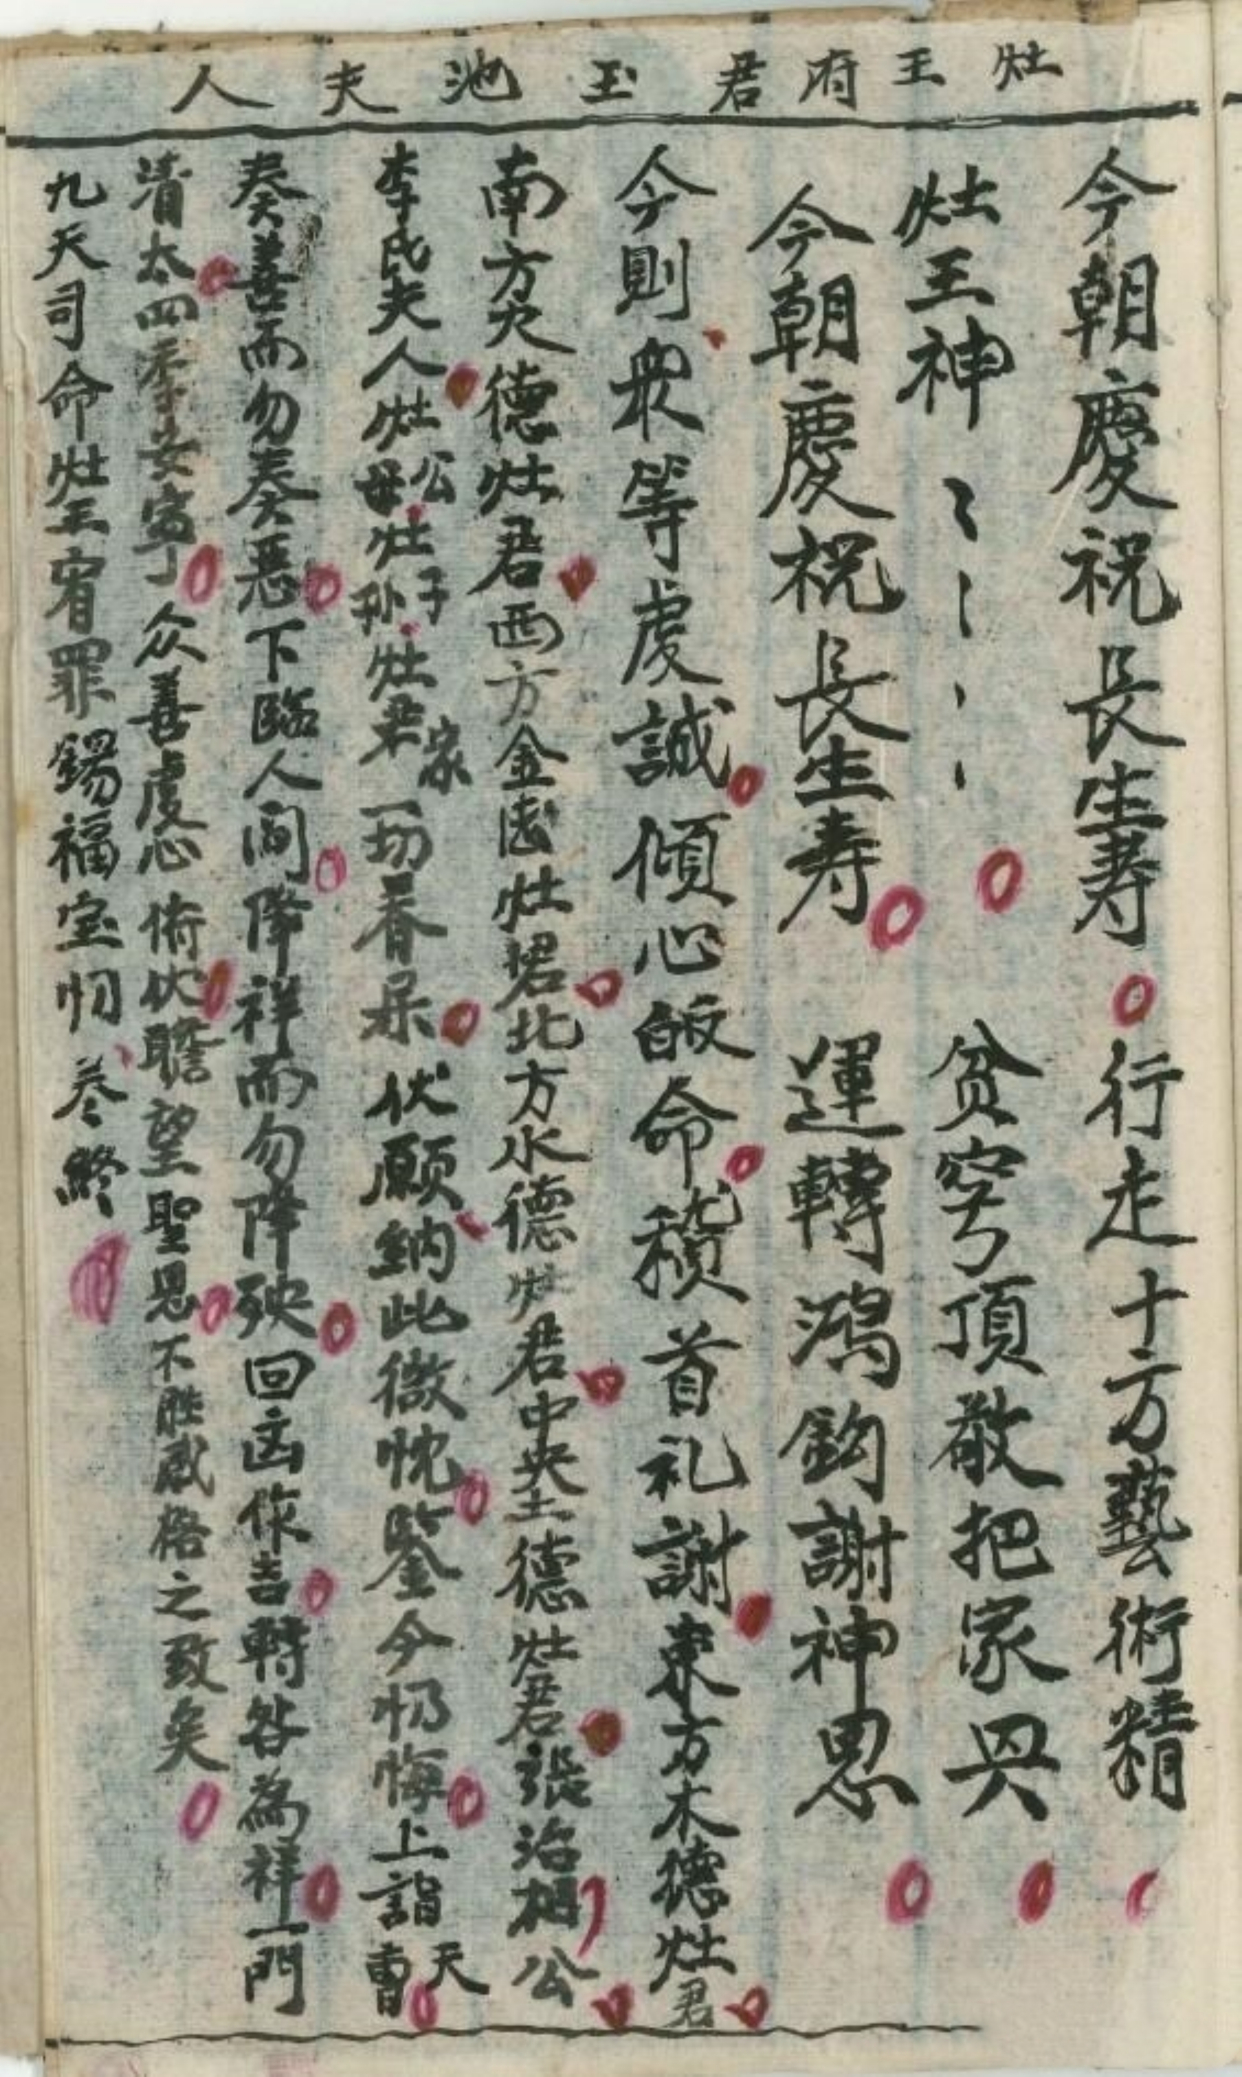 灶王府君玉池夫人
今朝慶祝長生寿行走十方藝術精
灶王神貧穷頂敬把家兴
今朝慶祝長生寿運轉鴻鈞謝神恩
今則衆等虔誠傾心皈命稽首礼謝東方木德灶君
南方火德灶君西方金德灶君北方水德灶君中央土德灶君張治相公
李氏夫人灶公母灶子孙灶君家一切眷属伏願納此微忱鉴今忏悔上詣天曹
奏善而勿奏恶下臨人间降祥而勿降殃回凶作吉轉咎為祥一門
清太四季安寧众善虔心俯伏瞻望聖恩不勝感格之致矣
九天司命灶王宥罪錫福宝忏卷終